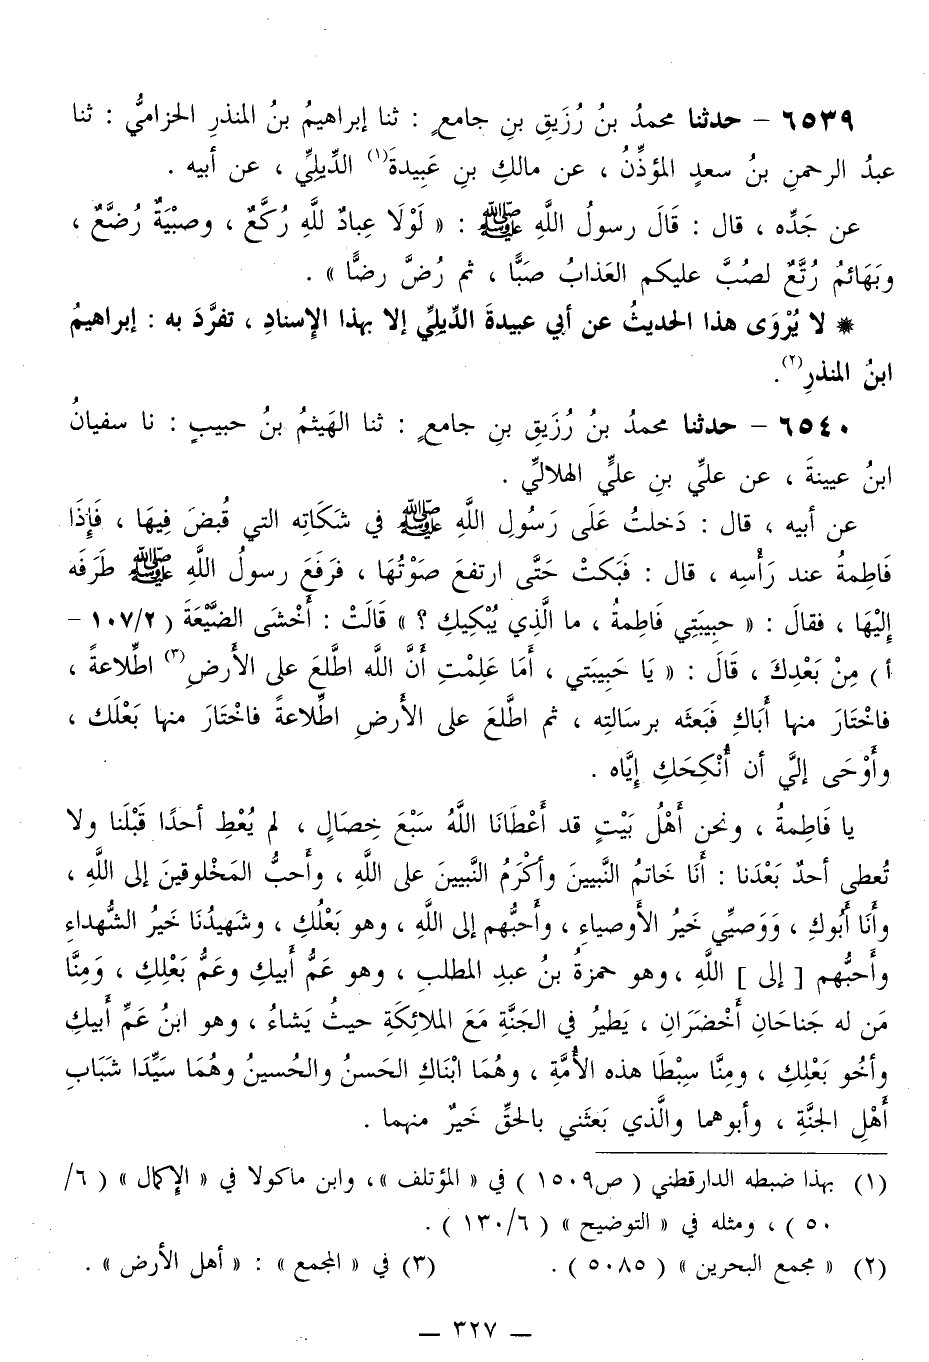 ٦٥٣٩ - حدثنا محمدُ بنُ رُزَيقِ بنِ جامعٍ : ثنا إبراهيمُ بنُ المنذرِ الحزاميُّ : ثنا
عبدُ الرحمنِ بنُ سعدٍ المؤذِّنُ ، عن مالكِ بنِ عَبِيدةَ(١) الدِّيليِّ ، عن أبيه .
عن جَدِّه ، قال : قَالَ رسولُ اللَّهِ ﷺ : « لَوْلَا عِبادٌ للَّهِ رُكَّعٌ ، وصبْيَةٌ رُضَّعٌ ،
وبَهَائمُ رُتَّعٌ لصُبَّ عليكم العَذابُ صَبًّا ، ثم رُضَّ رضًّا » .
* لا يُرْوَى هذا الحديثُ عن أبي عبيدةَ الدِّيليِّ إلا بهذا الإسنادِ ، تفرَّدَ به : إبراهيمُ
ابنُ المنذرِ(٢).
٦٥٤٠ - حدثنا محمدُ بنُ رُزَيقِ بنِ جامعٍ : ثنا الهَيثمُ بنُ حبيبٍ : نا سفيانُ
ابنُ عيينةَ ، عن عليِّ بنِ عليٍّ الهلاليِّ .
عن أبيه ، قال : دَخلتُ عَلَى رَسُولِ اللَّهِ ﷺ في شكَاتِه التي قُبضَ فِيهَا ، فَإِذَا
فَاطِمةُ عند رَأْسِه ، قال : فَبَكتْ حَتَّى ارتفعَ صَوْتُهَا ، فرفَعَ رسولُ اللَّهِ ﷺ طَرَفَه
إليْهَا ، فقالَ : « حبِيبَتِي فَاطِمةُ ، ما الَّذِي يُبْكيكِ ؟ » قَالَتْ : أَخْشَى الضَّيْعَةَ ( ١٠٧/٢ -
أ ) مِنْ بَعْدِكَ ، قَالَ : « يَا حَبِيبَتي ، أَمَا عَلِمْتِ أَنَّ اللَّه اطَّلعَ على الأَرضِ(٣) اطِّلاعةً ،
فاخْتَارَ منها أَبَاكِ فَبَعثَه برسَالتِه ، ثم اطَّلعَ على الأَرضِ اطِّلاعةً فاخْتَارَ منها بَعْلَك ،
وأَوْحَى إليَّ أن أُنْكِحَكِ إيَّاه .
يا فَاطِمةُ ، ونحن أَهْلُ بَيْتٍ قد أَعْطَانَا اللَّهُ سَبْعَ خِصَالٍ ، لم يُعْطِ أحدًا قَبْلَنا ولا
تُعطى أحدٌ بَعْدَنا : أَنَا خاتمُ النَّبيينَ وأَكْرَمُ النَّبيينَ على اللَّهِ ، وأحبُّ المَخْلوقينَ إلى اللَّهِ ،
وأَنَا أَبُوكِ ، وَوَصيِّي خَيرُ الأَوصياءِ ، وأَحبُّهم إلى اللَّهِ ، وهو بَعْلُكِ ، وشَهيدُنَا خَيرُ الشُّهداءِ
وأَحبُّهم [ إلى ] اللَّهِ ، وهو حمزةُ بنُ عبدِ المطلبِ ، وهو عَمُّ أَبيكِ وعَمُّ بَعْلِكِ ، وَمِنَّا
مَن له جَناحَانِ أَخْضَرَانِ ، يَطيرُ في الجَنَّةِ مَعَ الملائِكَةِ حيثُ يَشاءُ ، وهو ابنُ عَمِّ أَبيكِ
وأخُو بَعْلِكِ ، ومِنَّا سِبْطَا هذه الأُمَّةِ ، وهُمَا ابْنَاكِ الحَسنُ والحُسينُ وهُمَا سَيِّدَا شَبَابِ
أَهْلِ الجنَّةِ ، وأبوهما والَّذي بَعثَني بالحَقِّ خَيرٌ منهما .
(١) بهذا ضبطه الدارقطني ( ص١٥٠٩ ) في « المؤتلف »، وابن ماكولا في « الإكمال » ( ٦/
٥٠ ) ، ومثله في « التوضيح » ( ١٣٠/٦ ) .
(٢) « مجمع البحرين » ( ٥٠٨٥ ) . (٣) في « المجمع » : « أهل الأرض » .
— ٣٢٧ —